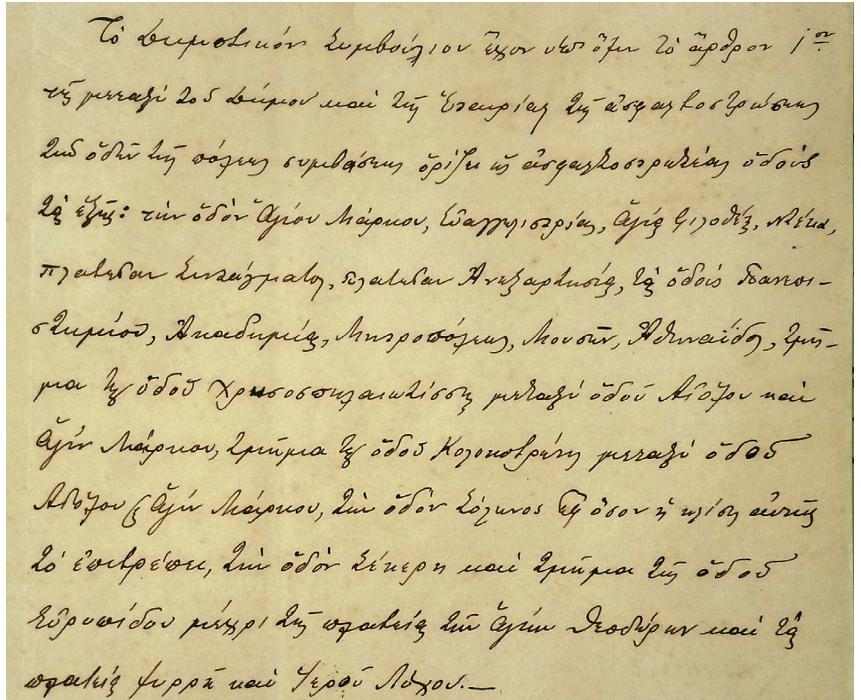 Τὸ Δημοτικόν Συμβούλιον ἔχον ὑπ' ὄψιν τὸ ἄρθρον 1ον
τῆς μεταξὺ τοῦ Δήμου καὶ τῆς Ἑταιρίας τῆς ἀσφαλτοστρώσεως
τῶν ὁδῶν τῆς πόλεως συμβάσεως ὁρίζει ὡς ἀσφαλτοστρωτέας ὁδοὺς
τὰς ἑξῆς: τὴν ὁδὸν Ἁγίου Μάρκου, Εὐαγγελιστρίας, Ἁγίας Φιλοθέης, Ντέκα,
πλατεῖαν Συντάγματος, πλατεῖαν Ἀνεξαρτησίας, τὰς ὁδοὺς Πανεπι-
στημίου, Ἀκαδημείας, Μητροπόλεως, Μουσῶν, Ἀθηναΐδος, τμῆ-
μα τῆς ὁδοῦ Χρυσοσπηλαιωτίσσης μεταξὺ ὁδοῦ Αἰόλου καὶ
Ἁγίου Μάρκου, τμῆμα τῆς ὁδοῦ Κολοκοτρώνη μεταξὺ ὁδοῦ
Αἰόλου & Ἁγίου Μάρκου, τὴν ὁδὸν Σόλωνος ἐφ' ὅσον ἡ κλίσις αὐτῆς
τὸ ἐπιτρέπει, τὴν ὁδὸν Σέκερη καὶ τμῆμα τῆς ὁδοῦ
Εὐριπίδου μέχρι τῆς πλατείας τῶν Ἁγίων Θεοδώρων καὶ τὰς
πλατείας Ψυρρῆ καὶ Ἱεροῦ Λόχου.—